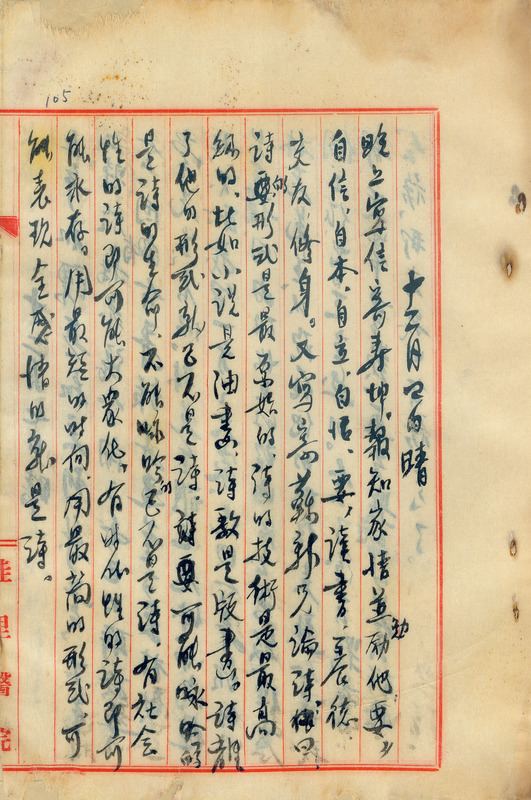 105
十二月四日 晴
晚上寫信寄壽坤，報知家情並勸勵他：要
自信，自本，自立，自恃，要，讀書，養德，
交友，修身。又寫寄蘇新兄論詩。
詩的要形式是最原始的，詩的技術是最高
級的，比如小說是油畫，詩歌是版畫。詩離
了他的形式就已不是詩。詩要可能咏吟的
是詩的生命，不能咏吟的已不是詩，有社會
性的詩即可能大眾化，有時代性的詩即可
能永存。用最短的時間，用最簡的形式，可
能表現全感情的就是詩。
醫院